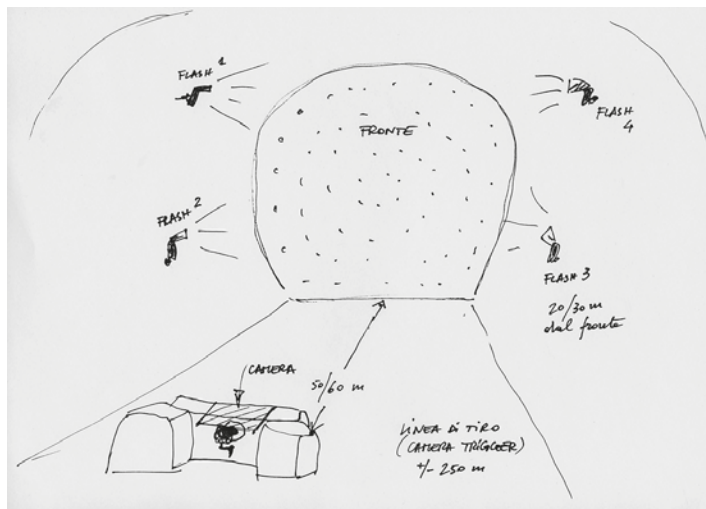 FLASH 1
FLASH
4
FRONTE
FLASH 2
FLASH 3
20/30 m
dal fronte
CAMERA
50/60 m
LINEA DI TIRO
(CAMERA TRIGGER)
+/- 250 m